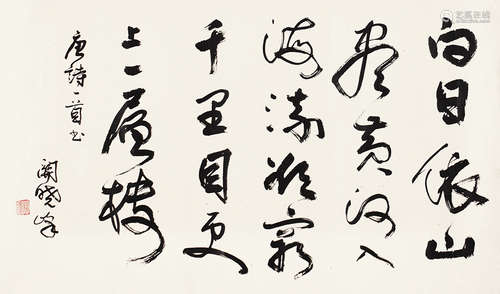 白日依山
尽黄河入
海流欲穷
千里目更
上一层楼
唐诗一首书
关晓峰